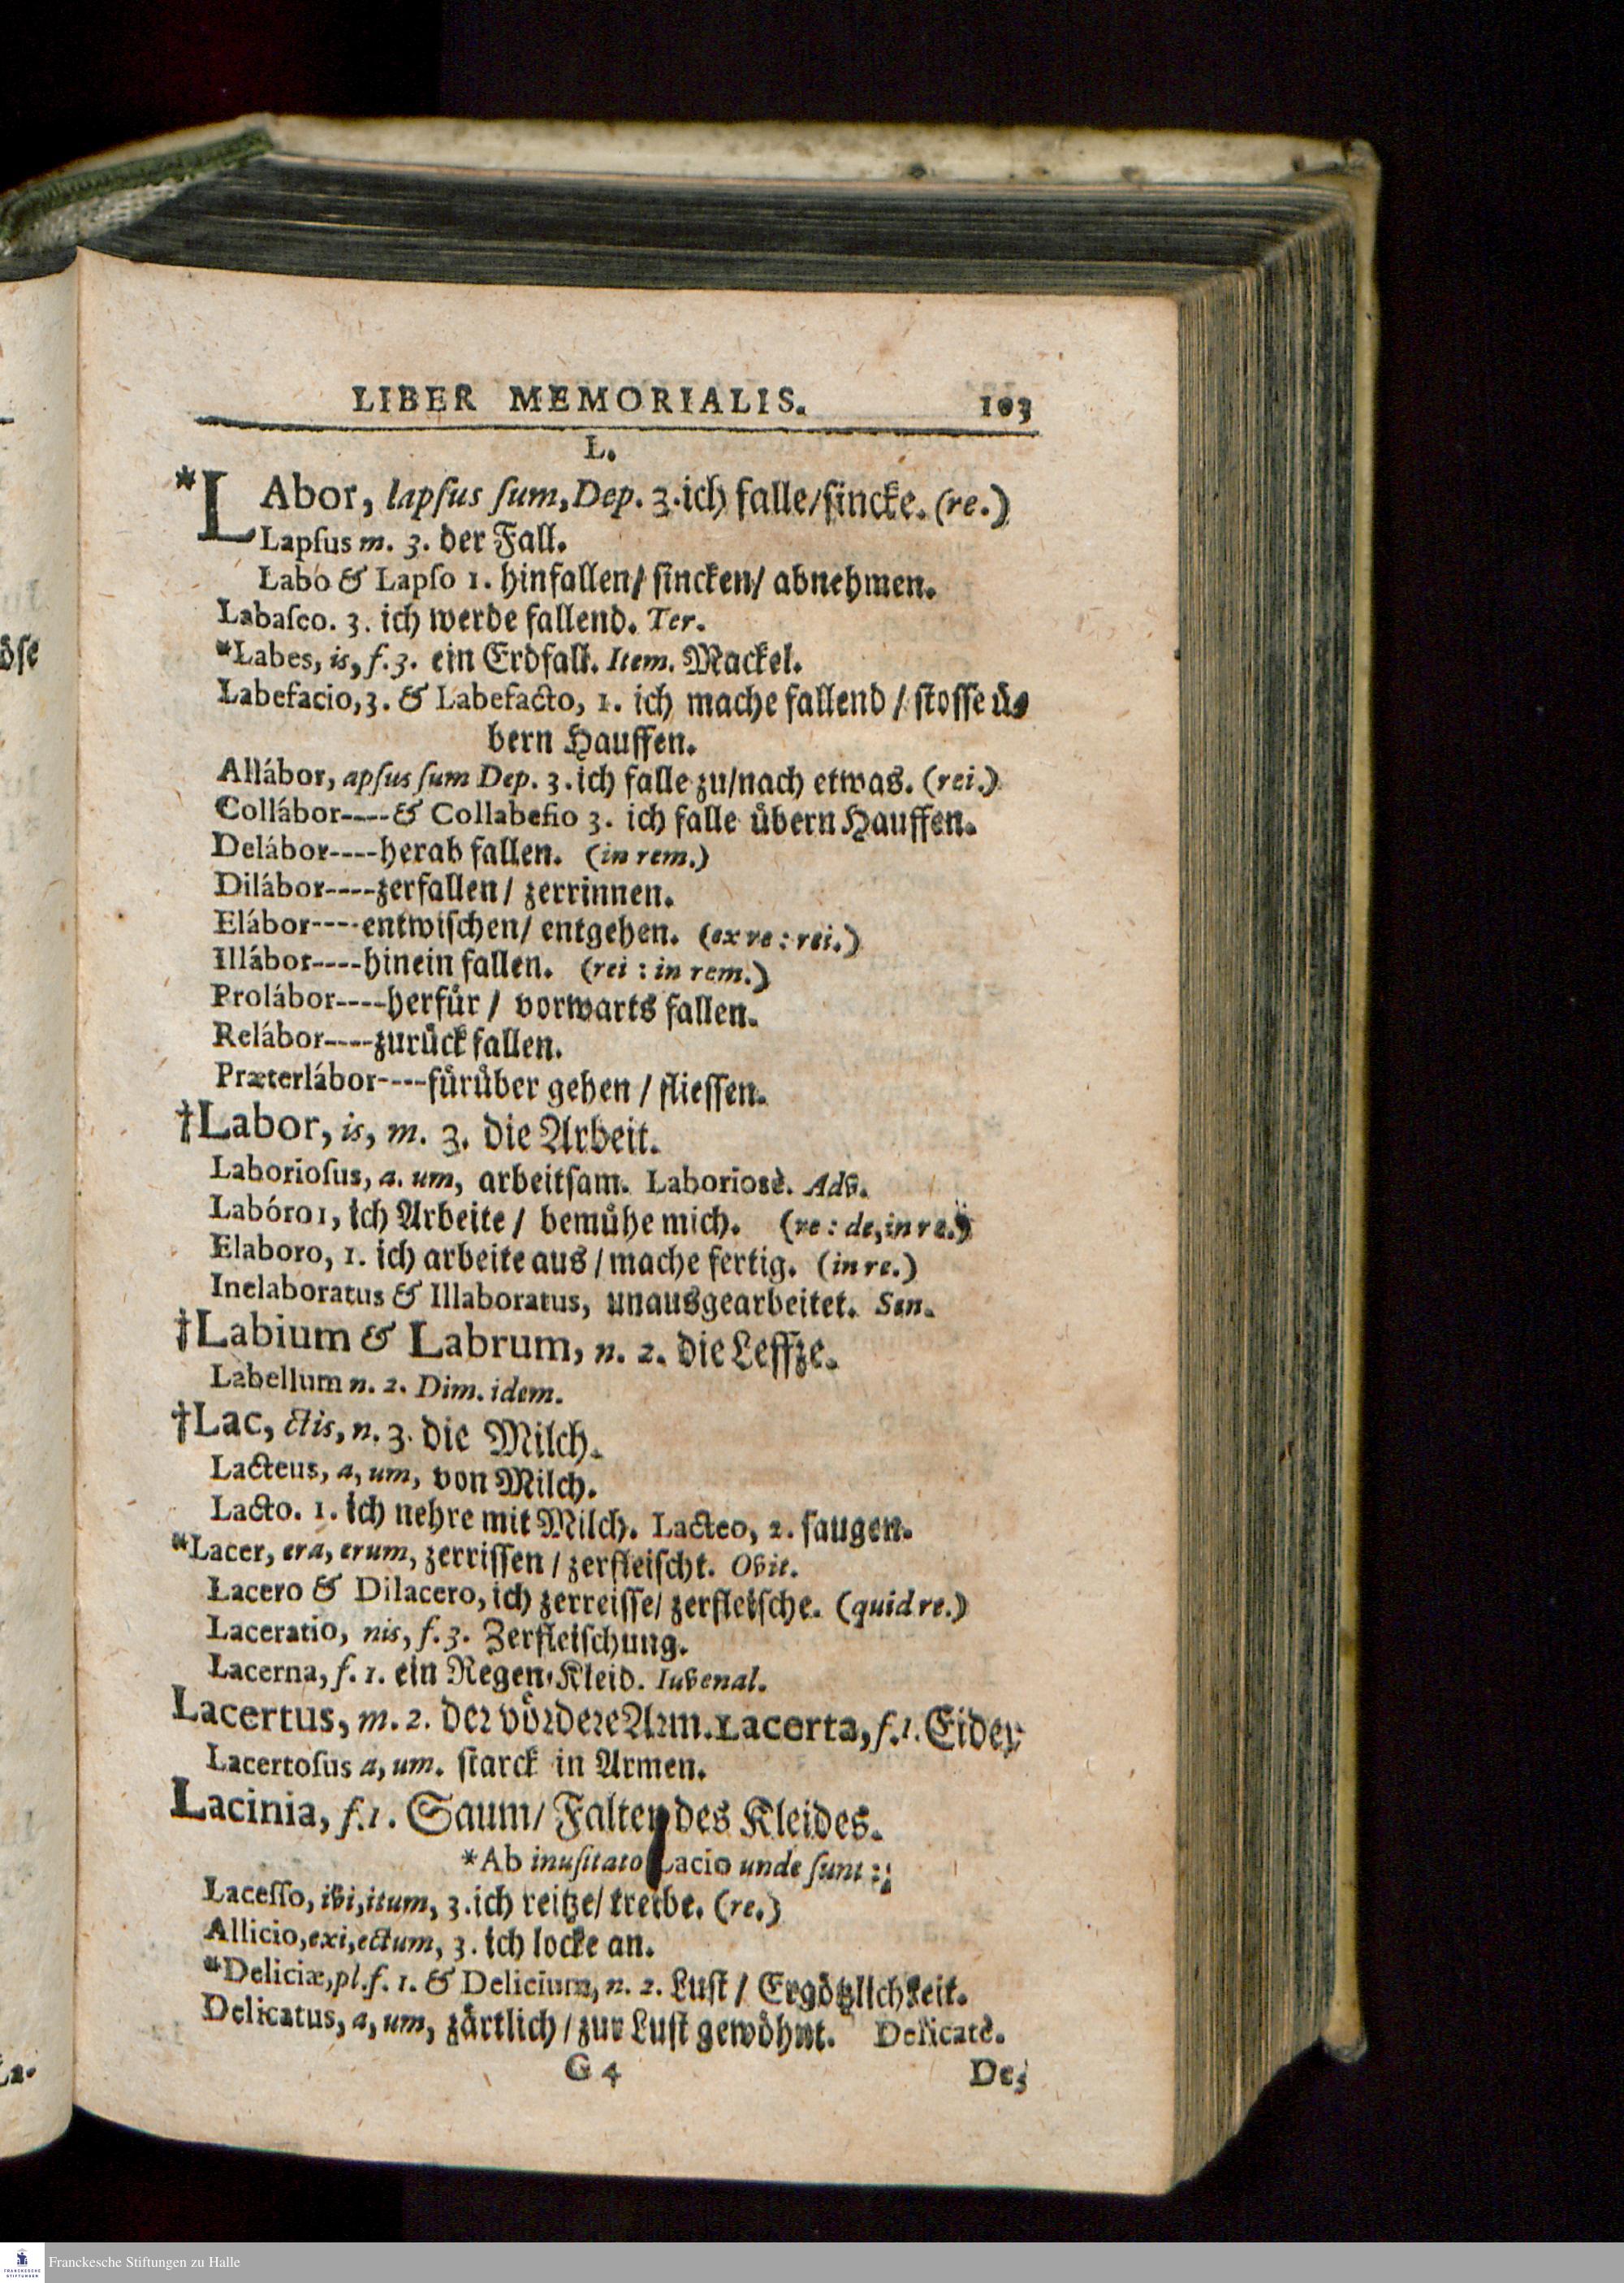 LIBER MEMORIALIS. 103
L.
*LAbor, lapſus ſum, Dep. 3. ich falle/ſincke. (re.)
Lapſus m. 3. der Fall.
Labo & Lapſo 1. hinfallen/ ſincken/ abnehmen.
Labaſco. 3. ich werde fallend. Ter.
*Labes, is, f. 3. ein Erdfall. Item. Mackel.
Labefacio, 3. & Labefacto, 1. ich mache fallend / ſtoſſe ü-
bern Hauffen.
Allábor, apſus ſum Dep. 3. ich falle zu/nach etwas. (rei.)
Collábor----& Collabefio 3. ich falle übern Hauffen.
Delábor----herab fallen. (in rem.)
Dilábor----zerfallen / zerrinnen.
Elábor----entwiſchen/ entgehen. (ex re : rei.)
Illábor----hinein fallen. (rei : in rem.)
Prolábor----herfür / vorwarts fallen.
Relábor----zurück fallen.
Præterlábor----fürüber gehen / flieſſen.
†Labor, is, m. 3. die Arbeit.
Laborioſus, a. um, arbeitſam. Laboriosè. Adv.
Labóro 1, ich Arbeite / bemühe mich. (re : de, in re.)
Elaboro, 1. ich arbeite aus / mache fertig. (in re.)
Inelaboratus & Illaboratus, unausgearbeitet. Sen.
†Labium & Labrum, n. 2. die Leffze.
Labellum n. 2. Dim. idem.
†Lac, ctis, n. 3. die Milch.
Lacteus, a, um, von Milch.
Lacto. 1. ich nehre mit Milch. Lacteo, 2. ſaugen.
*Lacer, era, erum, zerriſſen / zerfleiſcht. Ovit.
Lacero & Dilacero, ich zerreiſſe/ zerfleiſche. (quid re.)
Laceratio, nis, f. 3. Zerfleiſchung.
Lacerna, f. 1. ein Regen-Kleid. Iuvenal.
Lacertus, m. 2. der vördere Arm. Lacerta, f. 1. Eidex
Lacertoſus a, um. ſtarck in Armen.
Lacinia, f. 1. Saum/ Falten des Kleides.
*Ab inuſitato Lacio unde ſunt :
Laceſſo, ivi, itum, 3. ich reitze/ treibe. (re.)
Allicio, exi, ectum, 3. ich locke an.
*Deliciæ, pl. f. 1. & Delicium, n. 2. Luſt / Ergötzlichkeit.
Delicatus, a, um, zärtlich / zur Luſt gewöhnt. Delicatè.
G 4 De-
öſe
La-
Franckesche Stiftungen zu Halle
FRANCKESCHE
STIFTUNGEN